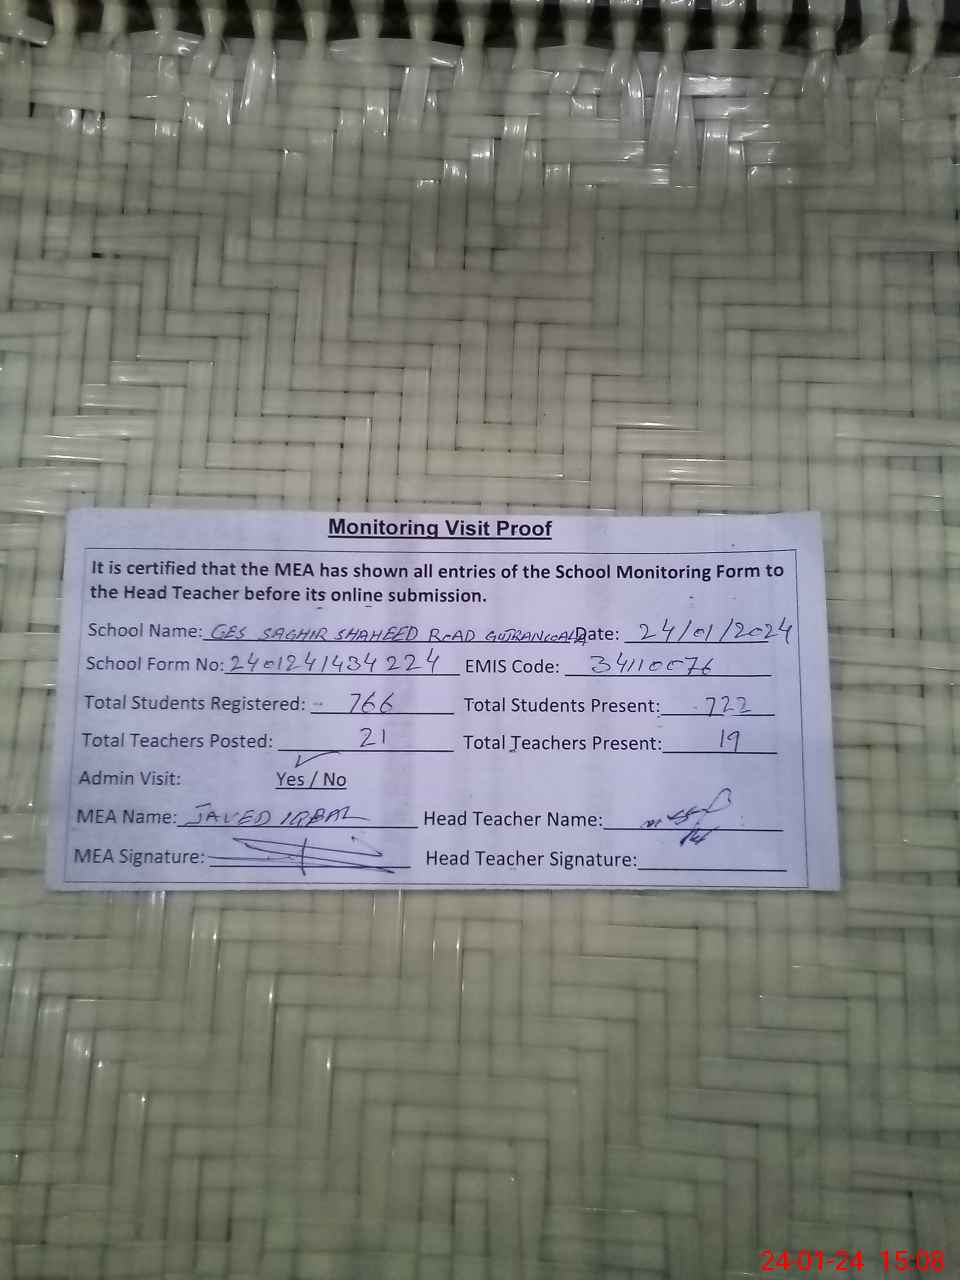 Monitoring Visit Proof
It is certified that the MEA has shown all entries of the School Monitoring Form to
the Head Teacher before its online submission.
School Name: GES SAGHIR SHAHEED ROAD GUJRANWALA Date: 24/01/2024
School Form No: 2401241434224 EMIS Code: 34110076
Total Students Registered: 766 Total Students Present: 722
Total Teachers Posted: 21 Total Teachers Present: 19
Admin Visit: Yes / No
MEA Name: JAVED IQBAL Head Teacher Name:
MEA Signature: Head Teacher Signature:
24-01-24 15:08